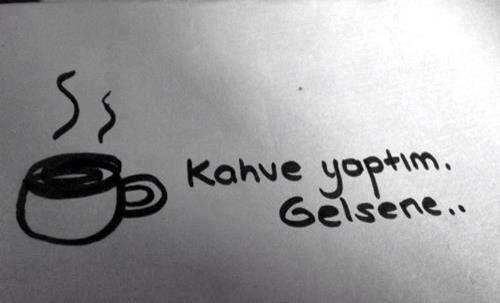 Kahve yaptım.
Gelsene..